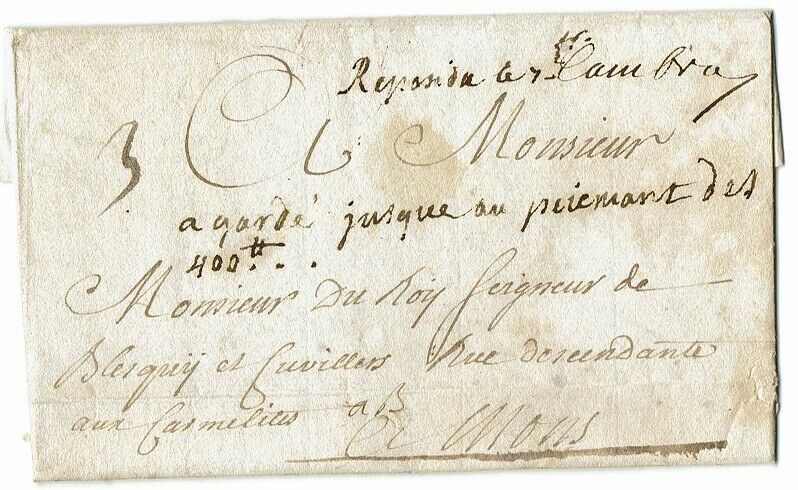 Reponda le 7 Cambra
3 Monsieur
a gardé jusque au piemant des
400 tt...
Monsieur Du Roy Seigneur de
Blerquy et Cuvillers Rue descendante
aux Carmelites a B
A Mons